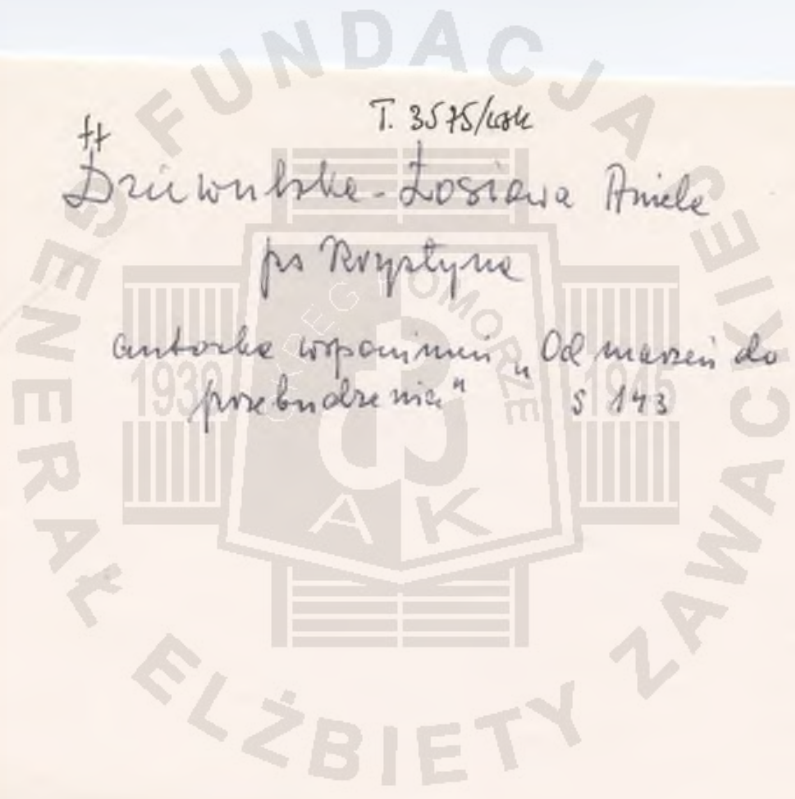 T. 3575/WSK
††
Dziewulska-Łosiowa Aniela
ps Krystyna
autorka wspomnień „Od marzeń do
przebudzenia" s 143
FUNDACJA GENERAŁ ELŻBIETY ZAWACKIEJ
OKRĘG POMORZE
1939 1945
AK